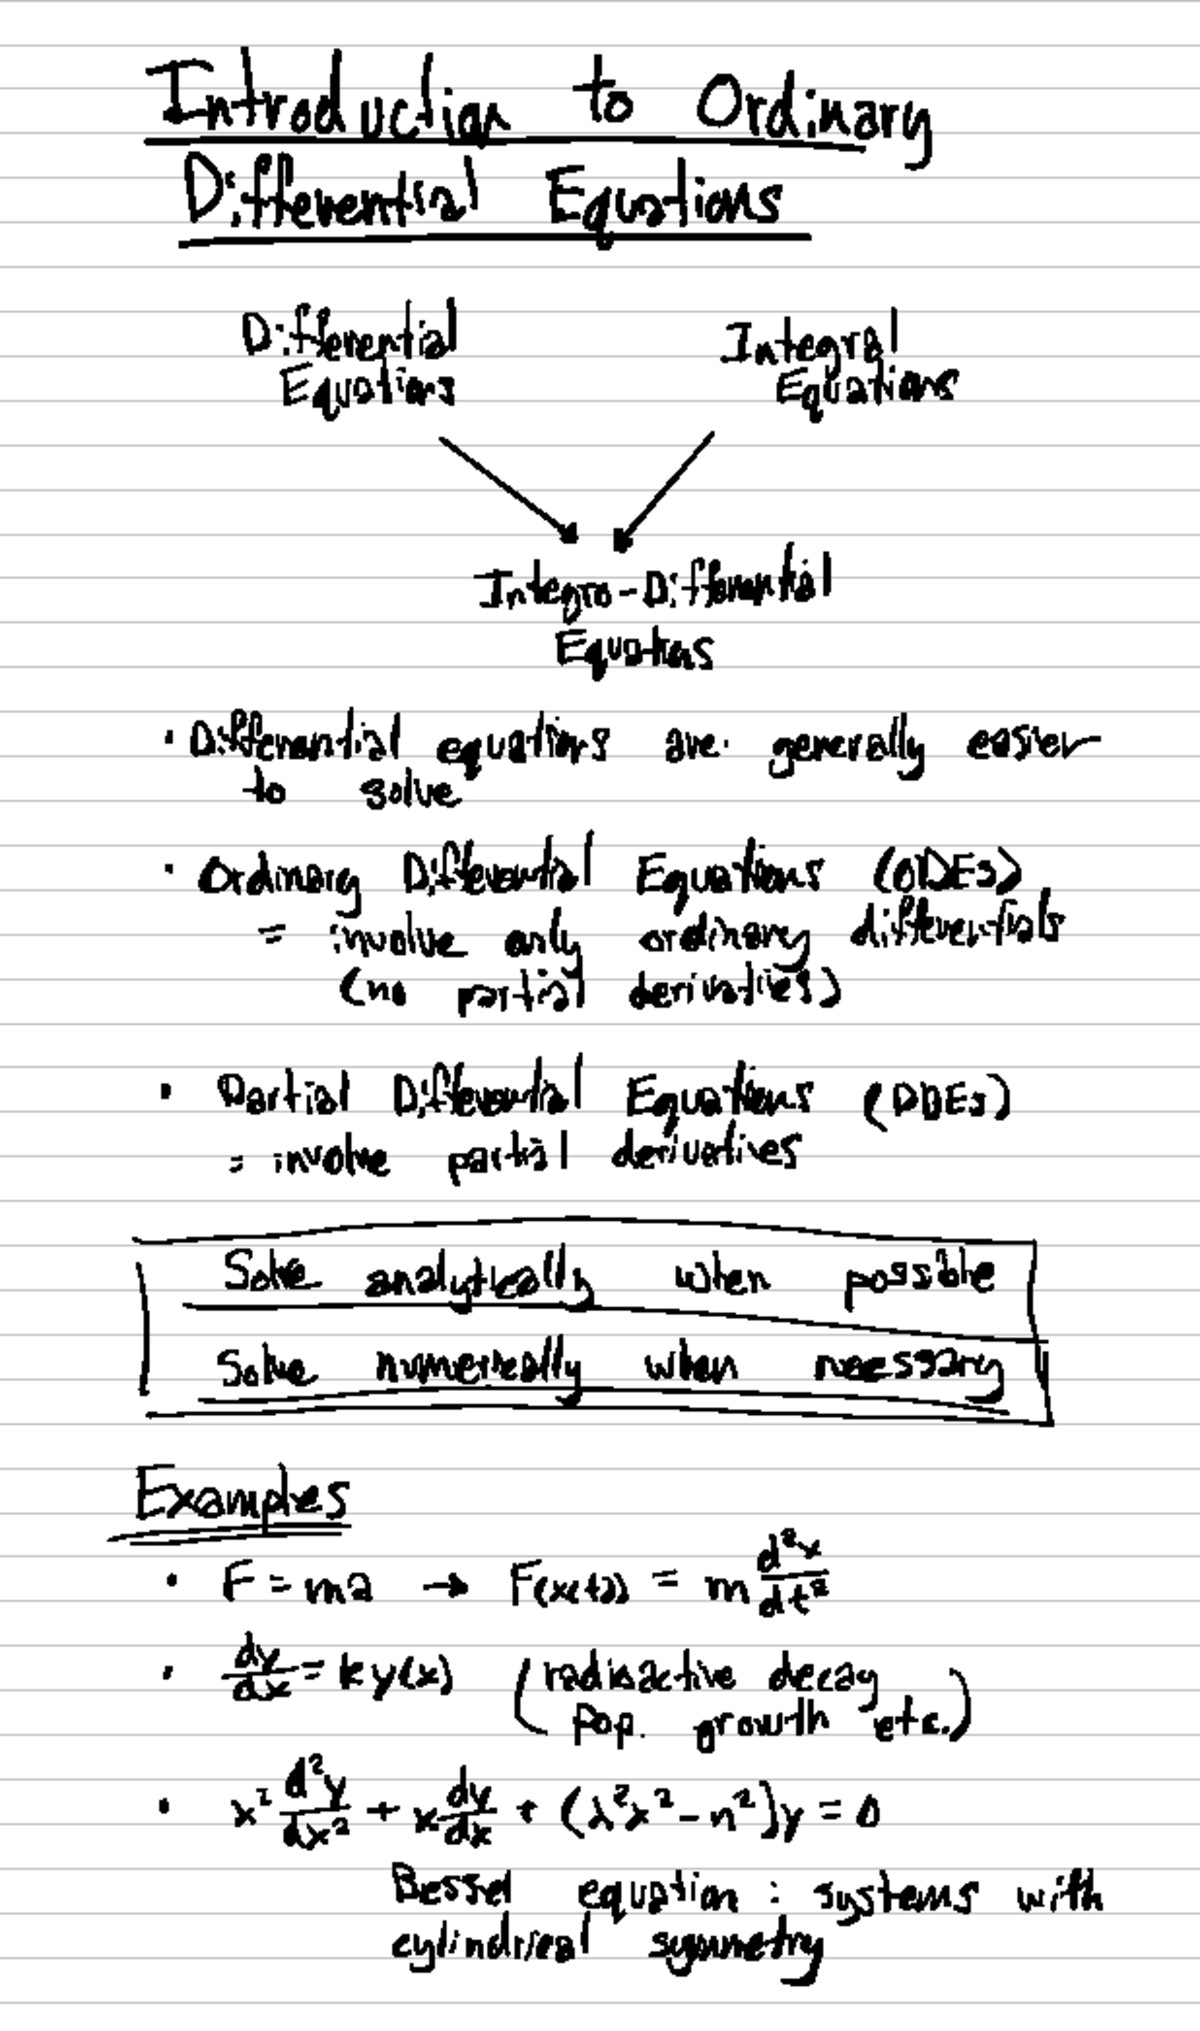 Introduction to Ordinary
Differential Equations
Differential
Equations
Integral
Equations
Integro-Differential
Equations
· Differential equations are generally easier
to solve
· Ordinary Differential Equations (ODEs)
= involve only ordinary differentials
(no partial derivatives)
· Partial Differential Equations (PDEs)
= involve partial derivatives
Solve analytically when possible
Solve numerically when necessary
Examples
· F = ma → F(x(t)) = m d²x/dt²
· dy/dx = ky(x) (radioactive decay
pop. growth etc.)
· x² d²y/dx² + x dy/dx + (λ²x² - n²)y = 0
Bessel equation : systems with
cylindrical symmetry